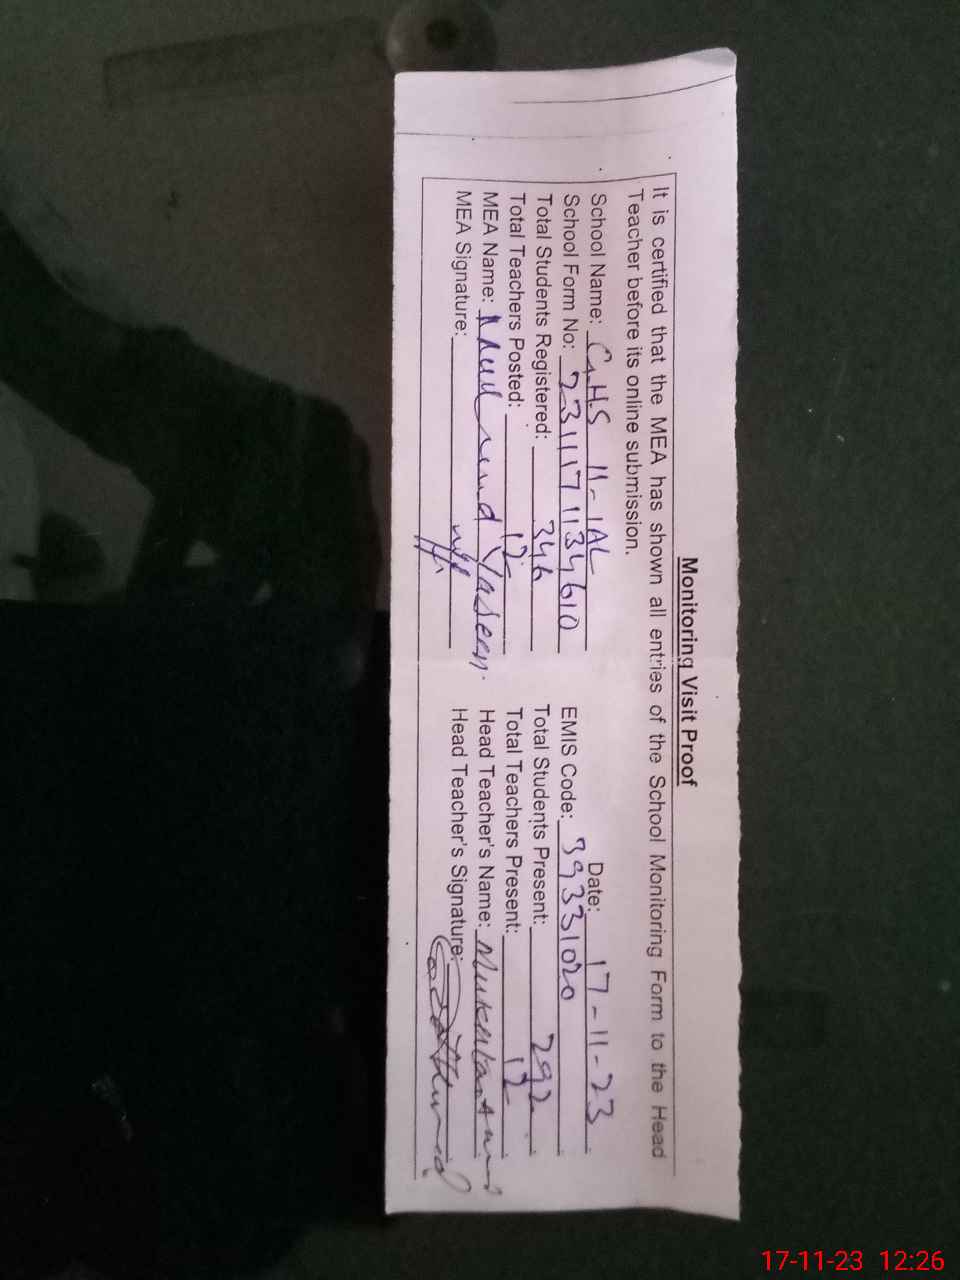 Monitoring Visit Proof
It is certified that the MEA has shown all entries of the School Monitoring Form to the Head
Teacher before its online submission.
School Name: GHS 11-1AL Date: 17-11-23
School Form No: 2311171134610 EMIS Code: 39331020
Total Students Registered: 346 Total Students Present: 292
Total Teachers Posted: 12 Total Teachers Present: 12
MEA Name: Yaseen Head Teacher's Name:
MEA Signature: Head Teacher's Signature:
17-11-23 12:26